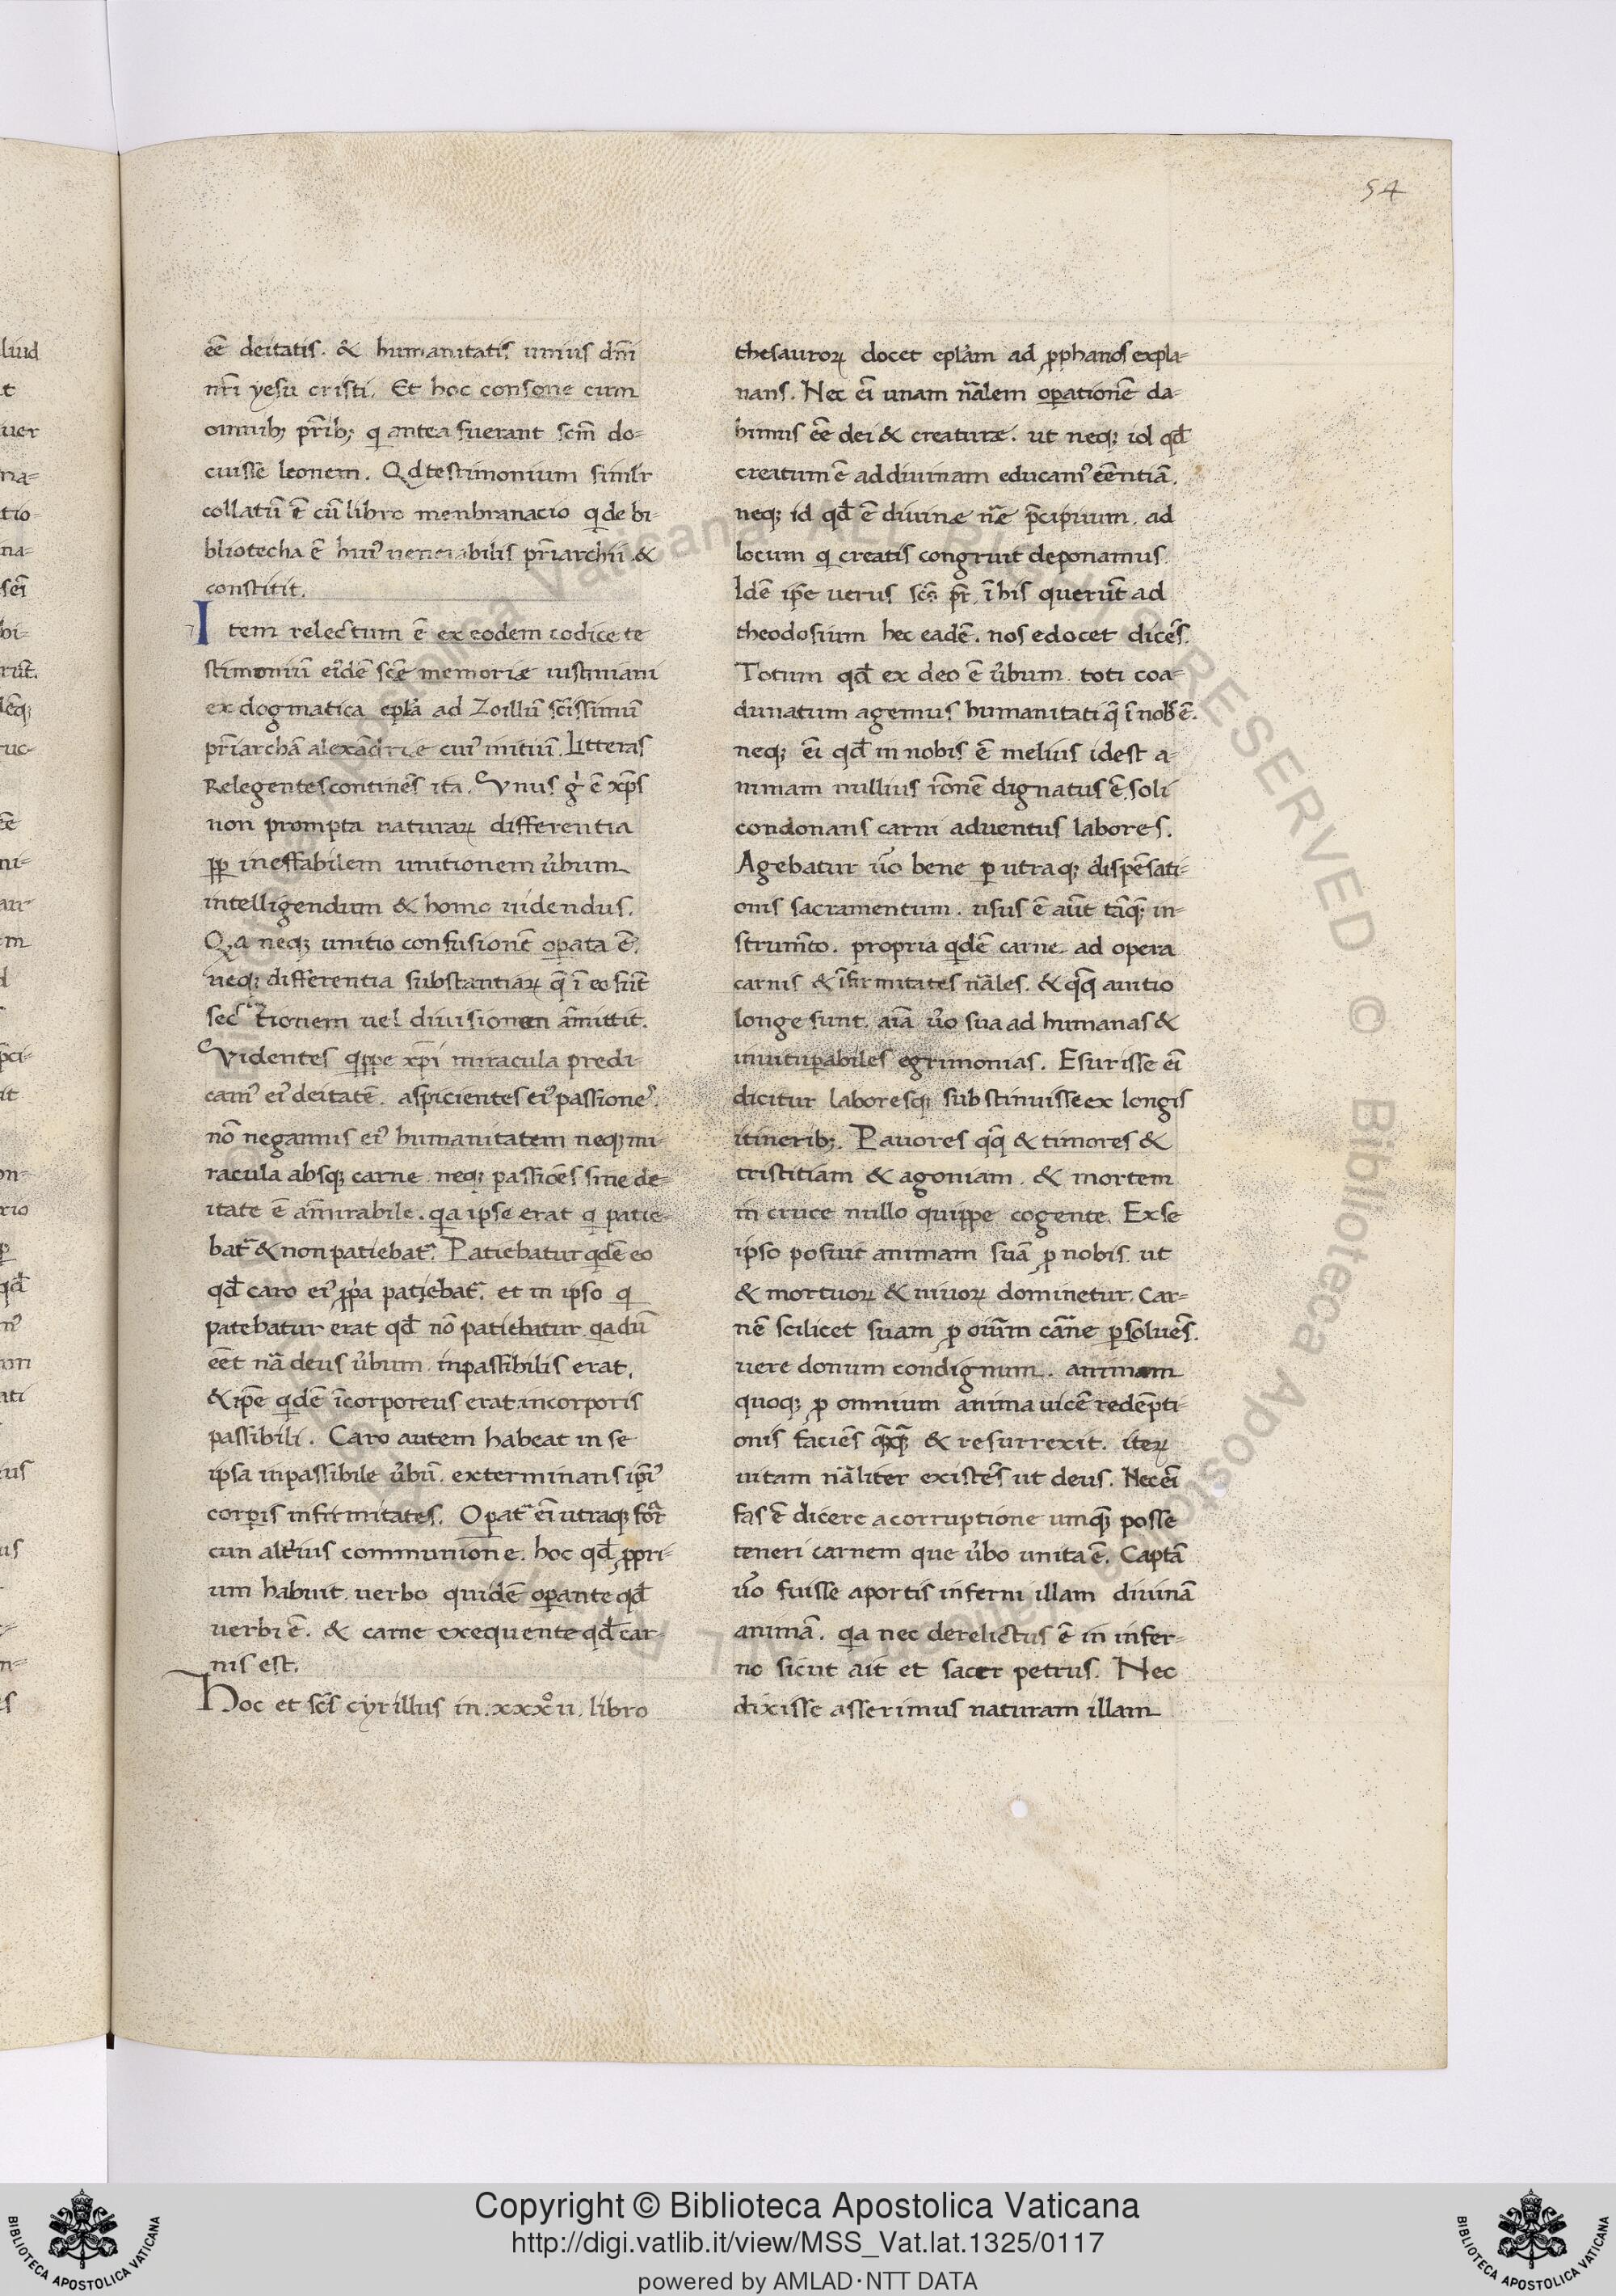 54
eē deitatis. & humanitatis unius dn̄i
nr̄i yesu cristi. Et hoc consone cum
omnib; pr̄ib; q antea fuerant scm̄ do=
cuisse leonem. Qd testimonium simlr
collatū ē cū libro menbranacio q de bi-
bliotecha ē hui᾽ uenerabilis pr̄iarchii &
constitit.
Item relectum ē ex eodem codice te
stimoniū ei᾽dē scē memoriæ iustiniani
ex dogmatica epl̄a ad Zoillū scīssimū
pr̄iarchā alexādrie cui᾽ initiū. Litteras
Relegentes continēs ita. Vnus g̊ ē xp̄s
non prompta naturaꝝ differentia
pp ineffabilem unitionem ūbum
intelligendum & homo uidendus.
Qa neq; unitio confusionē oꝑata ē.
neq; differentia substantiaꝝ q̄ ī eo sūt
sectionem uel diuisionem āmittit.
Videntes qippe xp̄i miracula predi
cam᾽ ei᾽ deitatē. aspicientes ei᾽ passione᾽.
nō negamus ei᾽ humanitatem neq; mi-
racula absq; carne neq; passiōes sine de=
itate ē am̄irabile. qa ipse erat q patie-
bat᾽ & non patiebat᾽. Patiebatur qdē eo
qd̄ caro ei᾽ ꝓp̄a patiebat᾽. et in ipso q
patebatur erat qd̄ nō patiebatur qa dū
eēt nā deus ūbum inpassibilis erat.
& ip̄e qdē īcorporeus erat incorporis
passibili. Caro autem habeat in se
ipsa inpassibile ūbū. exterminans ip̄i᾽
corꝑis infirmitates. Oꝑat᾽ ei̅ utraq; for̄
cun alt̄ius communione. hoc qd̄ ꝓpri-
um habuit uerbo quidē oꝑante qd̄
uerbi ē. & carne exequente qd̄ car-
nis est.
Hoc et scs̄ cyrillus in .xxx̊u. libro
thesauroꝝ docet epl̄am ad ꝓphanos expla=
nans. Nec ei̅ unam nāl̄em oꝑationē da-
bimus eē dei & creaturæ. ut neq; id qd̄
creatum ē ad diuinam educam᾽ eēntiā.
neq; id qd̄ ē diuinæ nr̄æ p̄cipiuum. ad
locum q creatis congruit deponamus.
Idē ip̄e uerus scs̄ pr̄. ī his querūt ad
theodosium hec eadē. nos edocet dicēs.
Totum qd̄ ex deo ē ūbum toti coa-
dunatum agemus humanitati q̄ ī nob᾽ ē.
neq; ei̅ qd̄ in nobis ē melius idest a-
nimam nullius rōnē dignatus ē. soli
condonans carni aduentus labores.
Agebatur ūo bene ꝑ utraq; dispēsati=
onis sacramentum. usus ē aūt tāq; in-
strum̄to. propria qdē carne. ad opera
carnis & īfirmitates nāles. & q̄q̄ auitio
longe sunt. aīa ūo sua ad humanas &
inuituꝑabiles egrimonias. Esurisse ei̅
dicitur laboresq; substinuisse ex longis
itinerib;. Pauores q̄q̄ & timores &
tristitiam & agoniam. & mortem
in cruce nullo quippe cogente. Ex se
ipso posuit animam suā ꝓ nobis ut
& mortuoꝝ & uiuoꝝ dominetur. Car-
nē scilicet suam ꝓ oīum cārne ꝑsoluēs.
uere donum condignum. animam
quoq; ꝓ omnium anima uicē redēpti-
onis faciēs q̄q̄ & resurrexit. iteꝝ
uitam nāliter existēs ut deus. Nec ei̅
fas ē dicere a corruptione umq̄ posse
teneri carnem que ūbo unita ē. Captā
ūo fuisse a portis inferni illam diuinā
animā. qa nec derelictus ē in infer-
no sicut ait et sacer petrus. Nec
dixisse asserimus naturam illam
© Biblioteca Apostolica Vaticana ALL RIGHTS RESERVED
Copyright © Biblioteca Apostolica Vaticana
http://digi.vatlib.it/view/MSS_Vat.lat.1325/0117
powered by AMLAD·NTT DATA
BIBLIOTECA APOSTOLICA VATICANA
BIBLIOTECA APOSTOLICA VATICANA